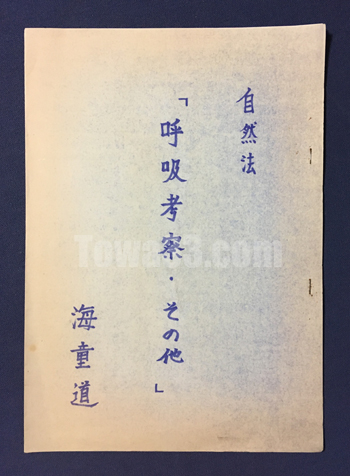 自然法
「呼吸考察・その他」
海童道
Towa33.com